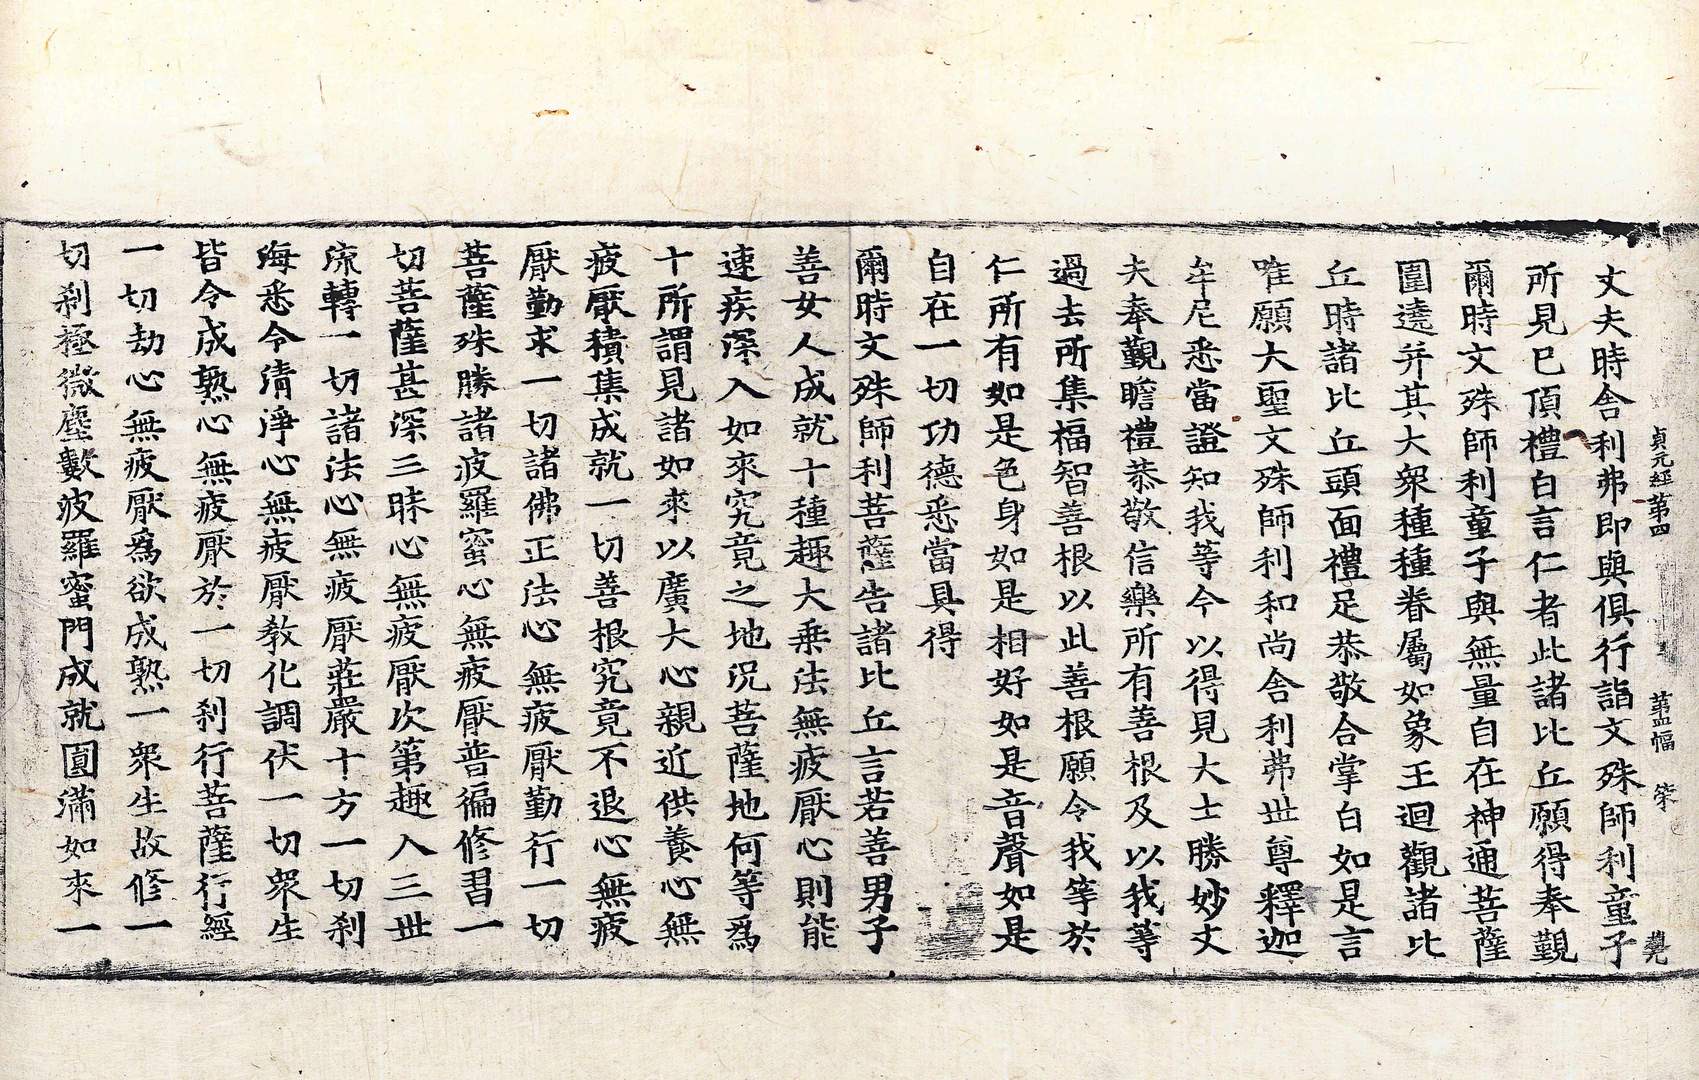 貞元經第四 第四幅 榮
丈夫時舍利弗即與俱行詣文殊師利童子
所見已頂禮白言仁者此諸比丘願得奉覲
爾時文殊師利童子與無量自在神通菩薩
圍遶并其大衆種種眷屬如象王迴觀諸比
丘時諸比丘頭面禮足恭敬合掌白如是言
唯願大聖文殊師利和尚舍利弗世尊釋迦
牟尼悉當證知我等今以得見大士勝妙丈
夫奉覲瞻禮恭敬信樂所有善根及以我等
過去所集福智善根以此善根願令我等於
仁所有如是色身如是相好如是音聲如是
自在一切功德悉當具得
爾時文殊師利菩薩告諸比丘言若善男子
善女人成就十種趣大乘法無疲厭心則能
速疾深入如來究竟之地況菩薩地何等爲
十所謂見諸如來以廣大心親近供養心無
疲厭積集成就一切善根究竟不退心無疲
厭勤求一切諸佛正法心無疲厭勤行一切
菩薩殊勝諸波羅蜜心無疲厭普徧修習一
切菩薩甚深三昧心無疲厭次第趣入三世
流轉一切諸法心無疲厭莊嚴十方一切刹
海悉令清淨心無疲厭教化調伏一切衆生
皆令成熟心無疲厭於一切刹行菩薩行經
一切劫心無疲厭爲欲成熟一衆生故修一
切刹極微塵數波羅蜜門成就圓滿如來一